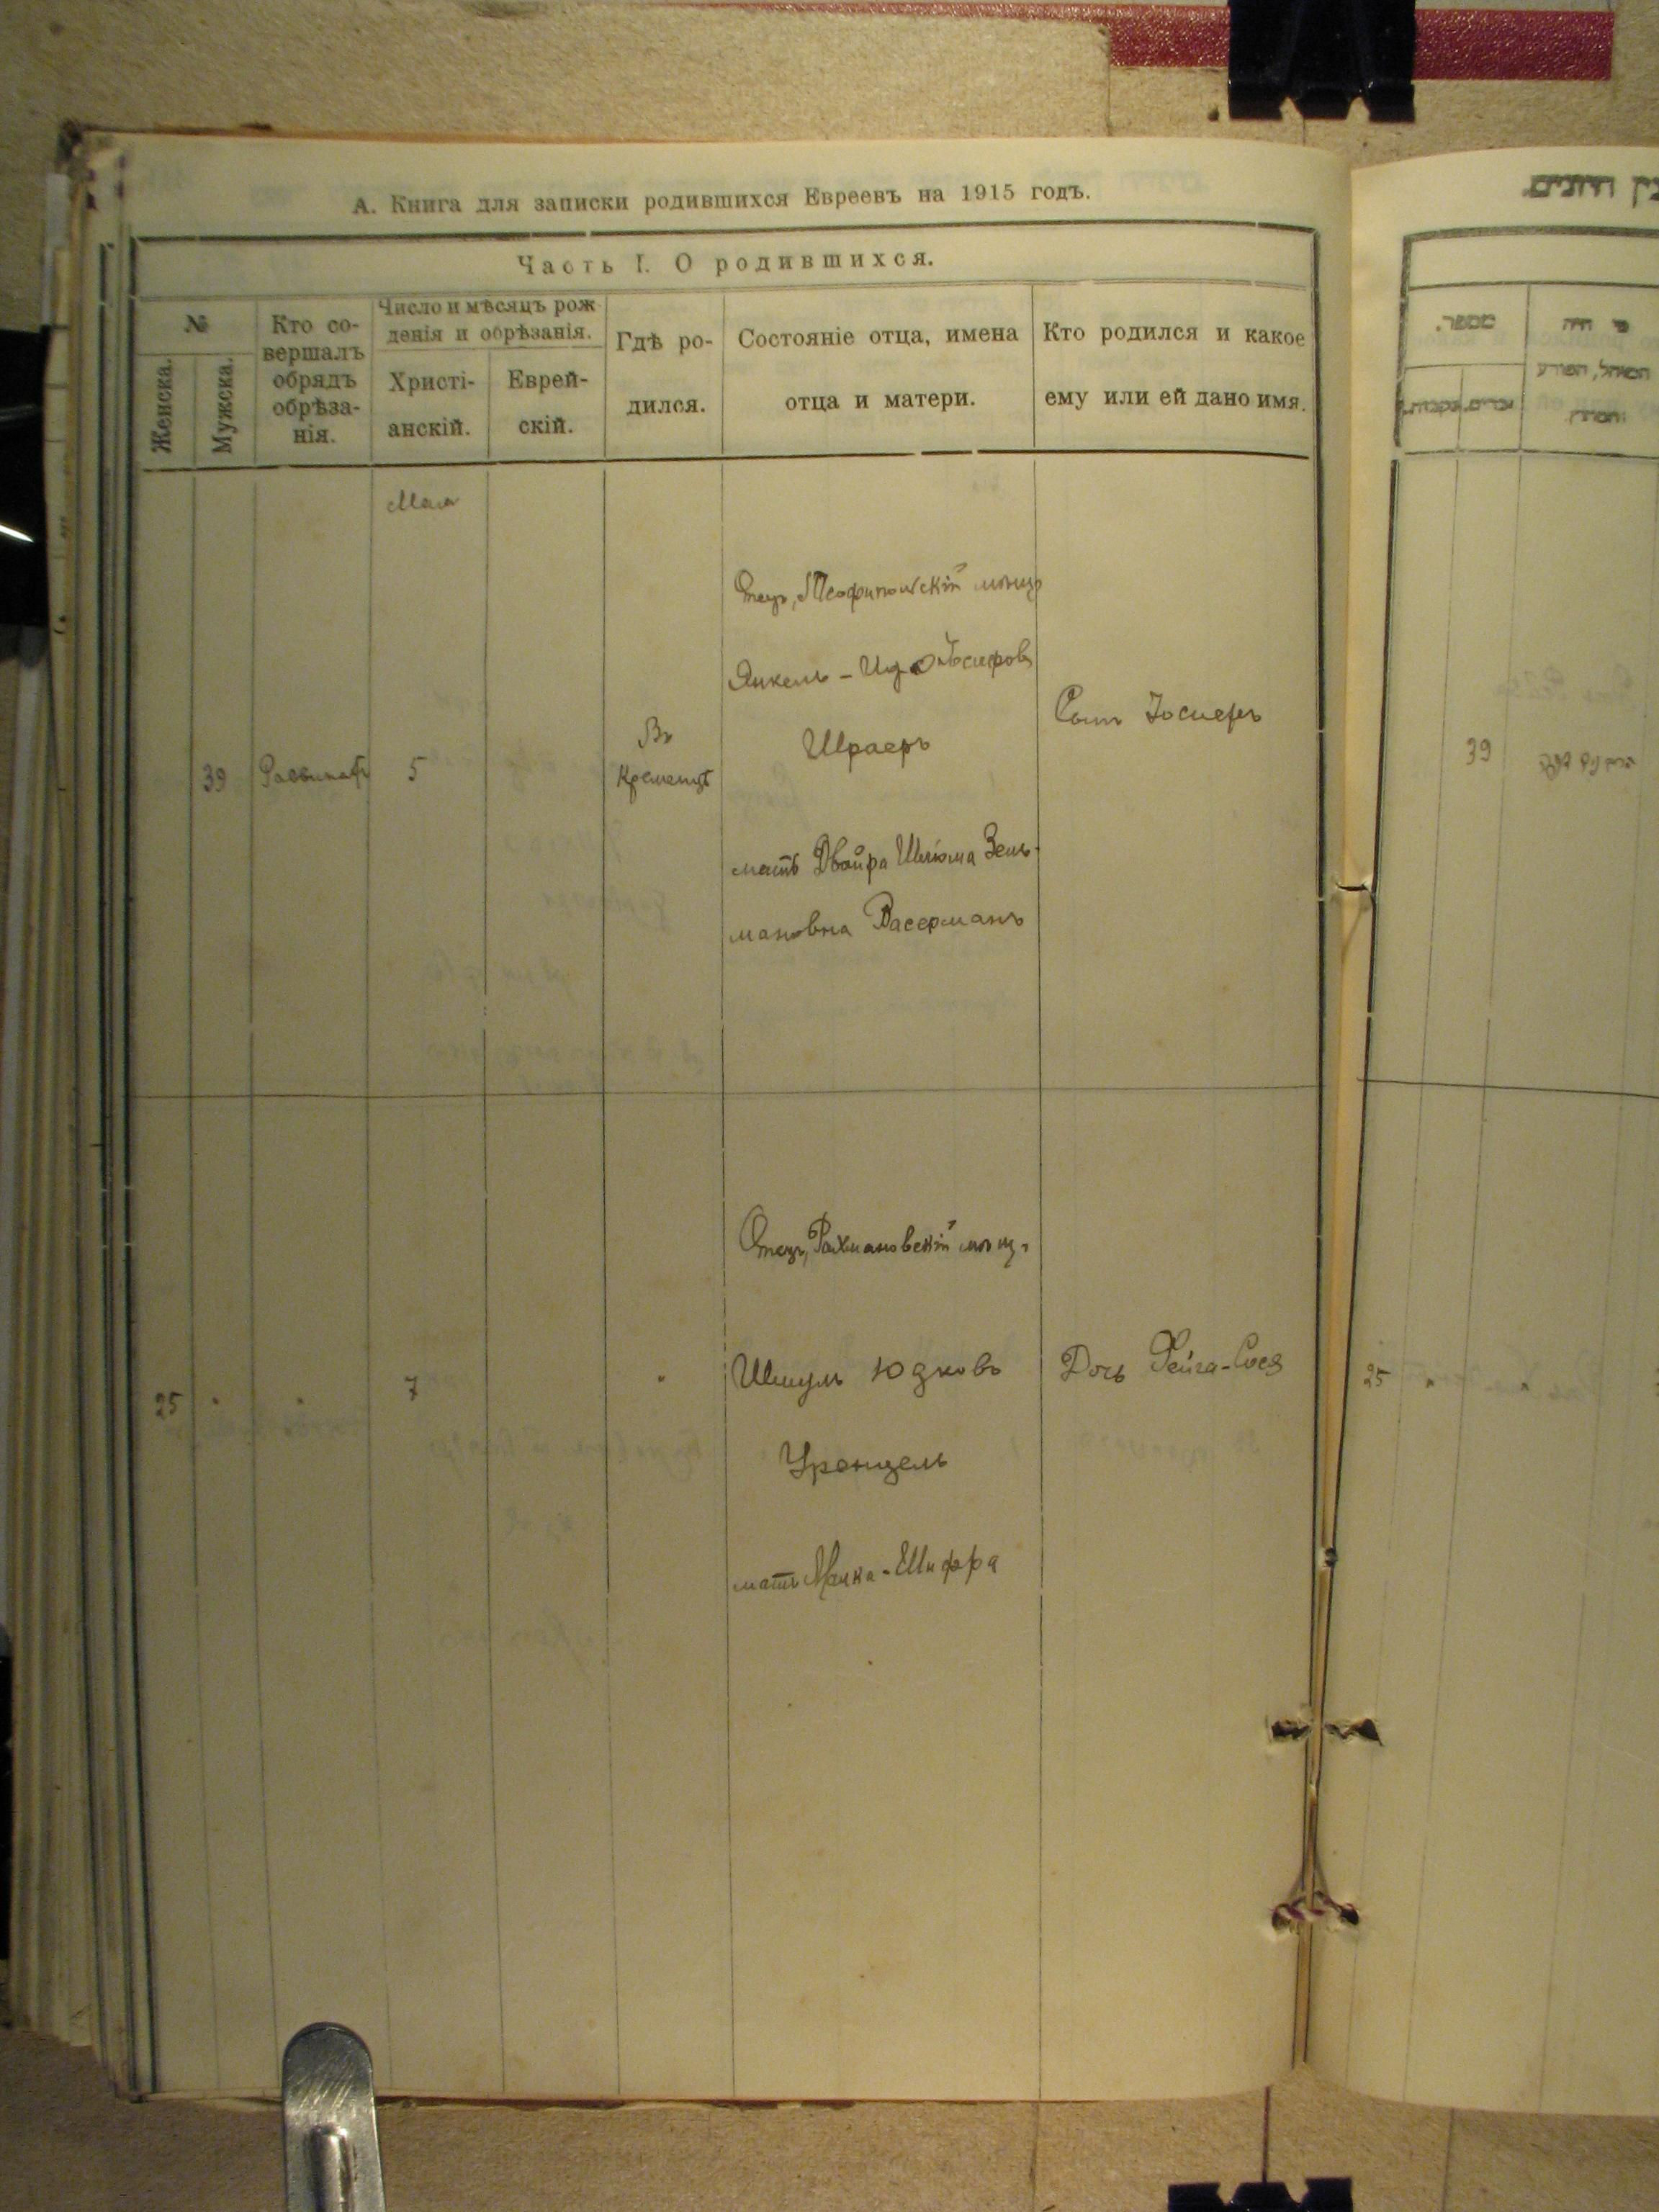 А. Книга для записки родившихся Евреевъ на 1915 годъ.
Часть I. О родившихся.
№
Женска.
Мужска.
Кто со-
вершалъ
обрядъ
обрѣза-
нія.
Число и мѣсяцъ рож
денія и обрѣзанія.
Христі-
анскій.
Еврей-
скій.
Гдѣ ро-
дился.
Состояніе отца, имена
отца и матери.
Кто родился и какое
ему или ей дано имя.
Мая
39
5
Въ
Кременцѣ
Отецъ, Теофипольскій мѣщ
Янкель-
Шраеръ
мать Двойра Шлiома Зель-
мановна Васерманъ
Сынъ Іосифъ
25
"
"
7
"
Отецъ, Рахмановскій мѣщ.
Шмуль Юдковъ
мать Шифра
Дочь Фейга-Сося
מספר.
39
25
"
"